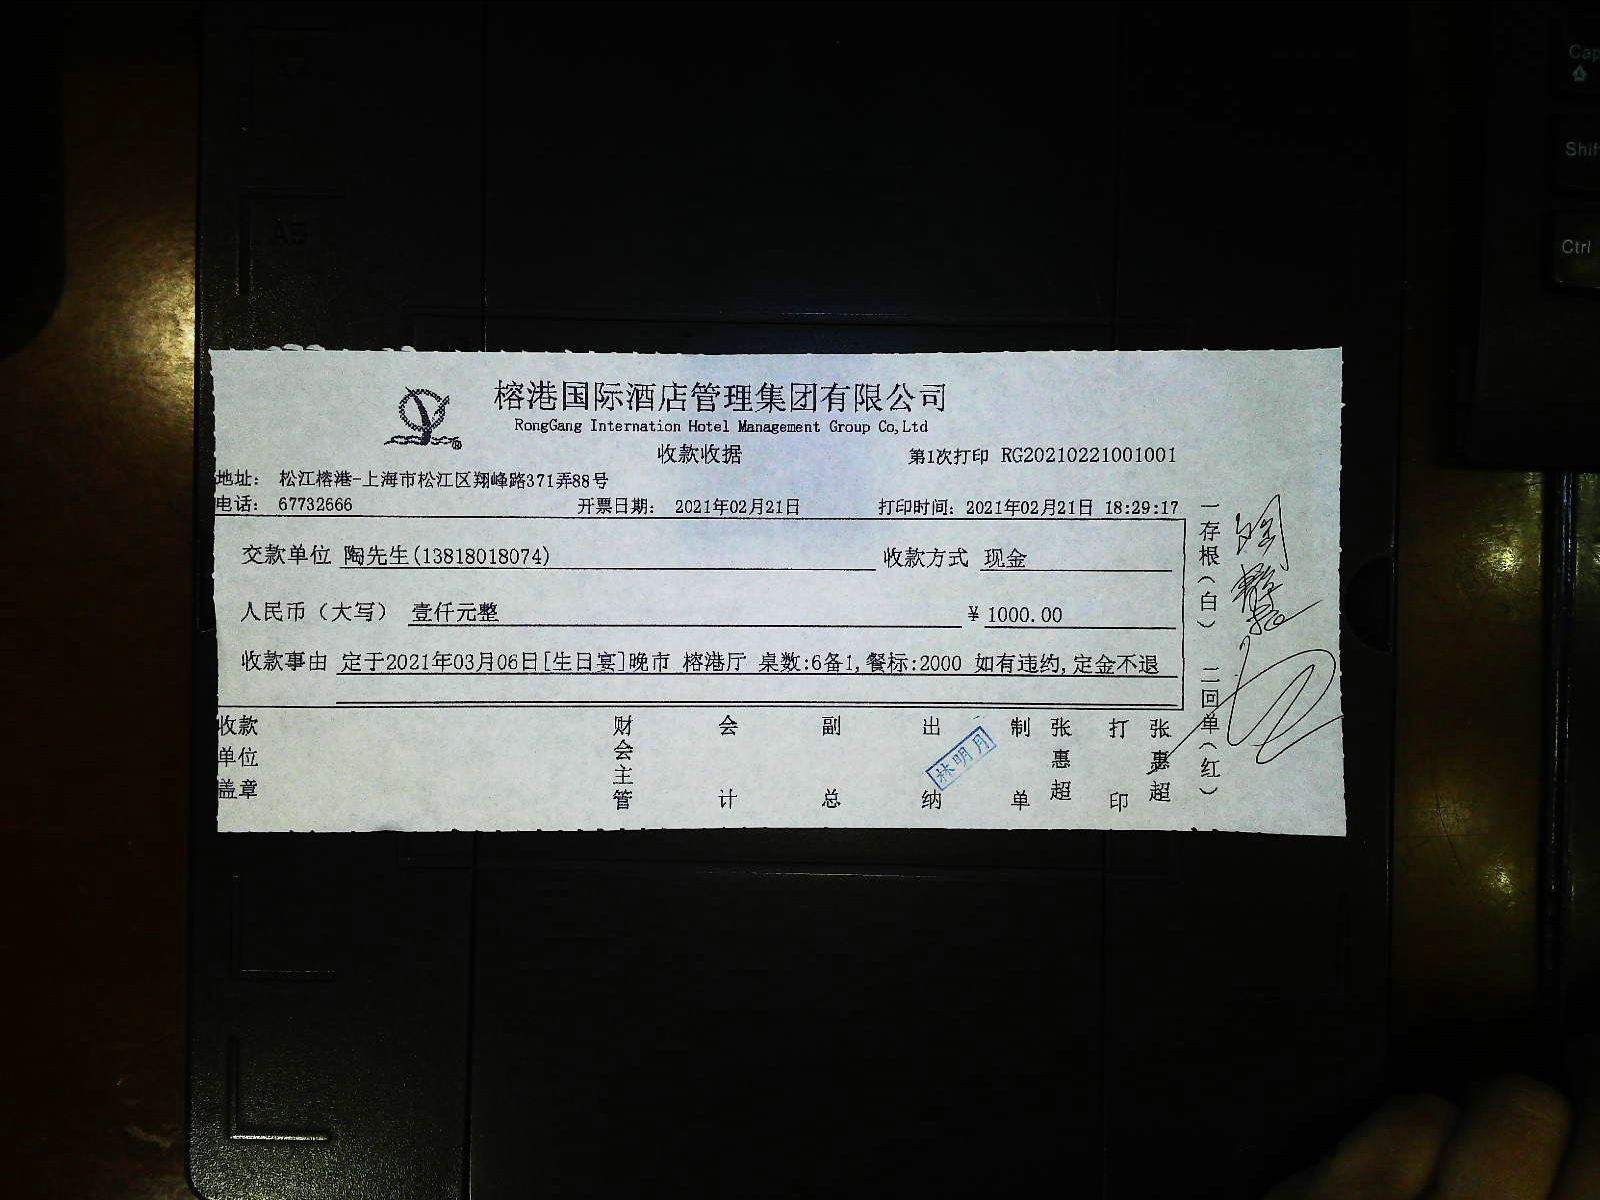 榕港国际酒店管理集团有限公司
RongGang Internation Hotel Management Group Co,Ltd
收款收据
第1次打印 RG20210221001001
地址： 松江榕港-上海市松江区翔峰路371弄88号
电话： 67732666 开票日期： 2021年02月21日 打印时间：2021年02月21日 18:29:17
交款单位 陶先生(13818018074) 收款方式 现金
人民币（大写） 壹仟元整 ¥ 1000.00
收款事由 定于2021年03月06日[生日宴]晚市 榕港厅 桌数:6备1,餐标:2000 如有违约,定金不退
收款单位盖章 财会主管 会计 副总 出纳 林明月 制单 张惠超 打印 张惠超
一存根（白） 二回单（红）
A5
Cap
Shif
Ctrl